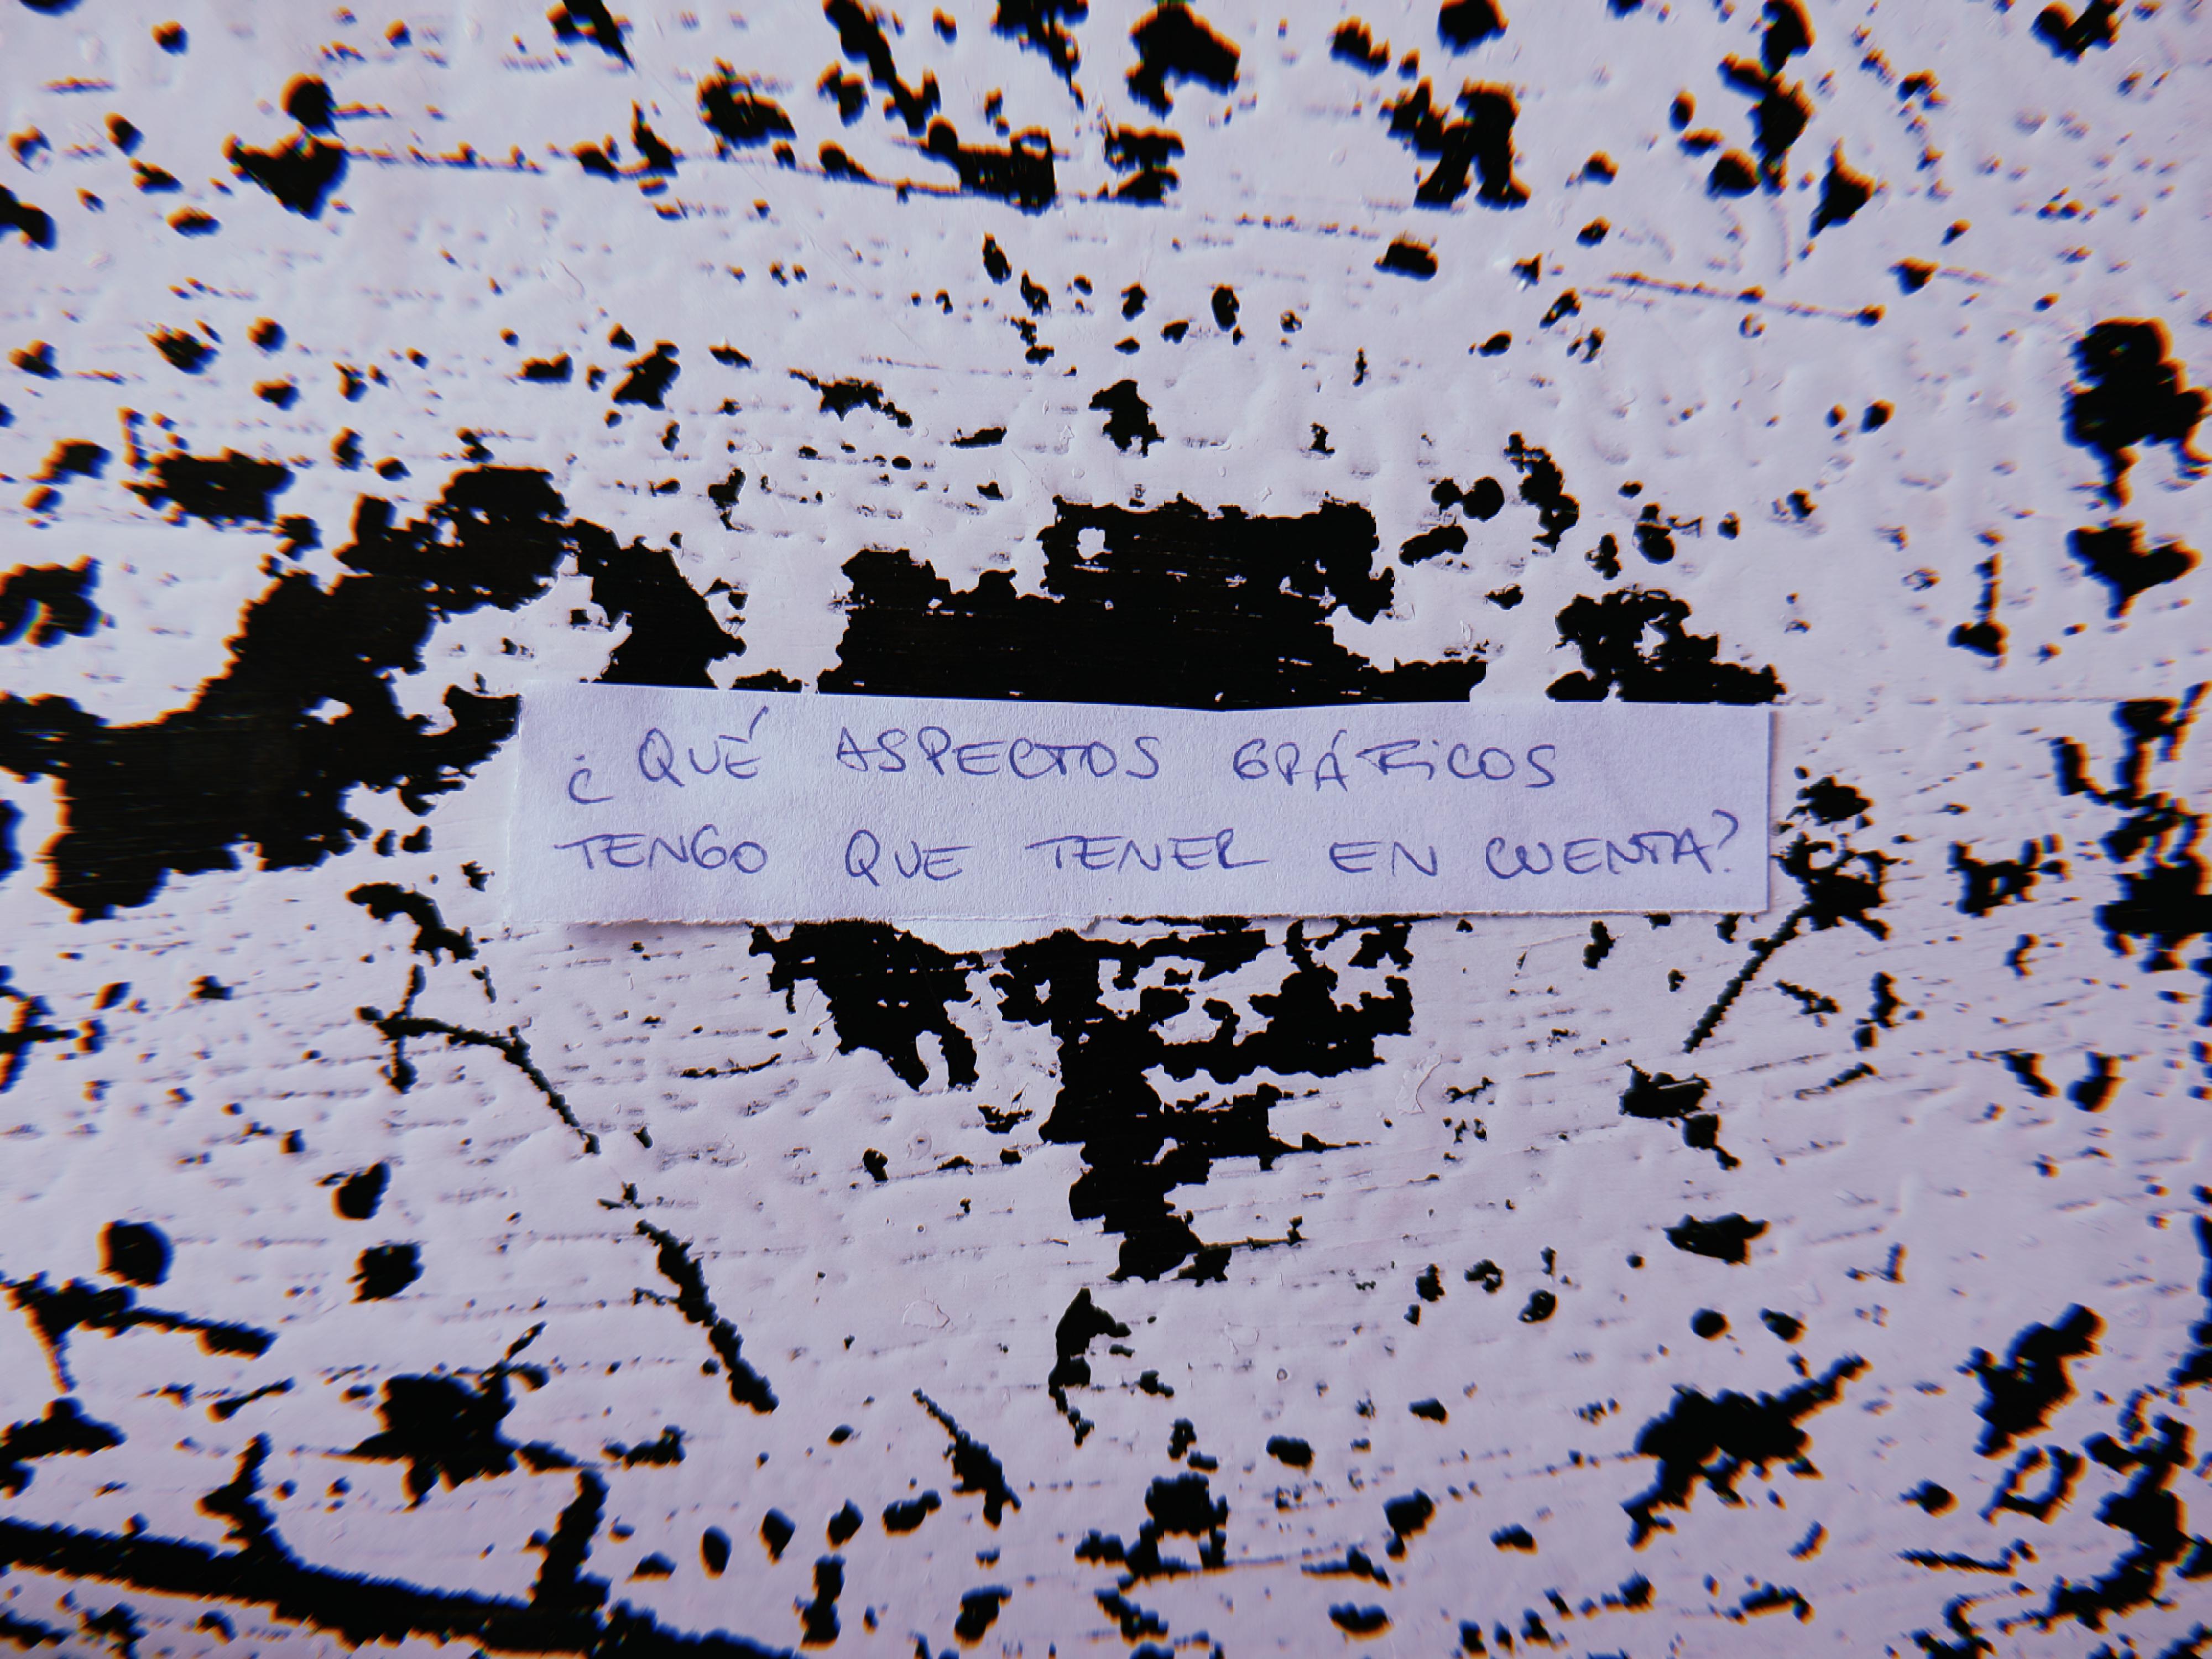 ¿QUÉ ASPECTOS GRÁFICOS
TENGO QUE TENER EN CUENTA?